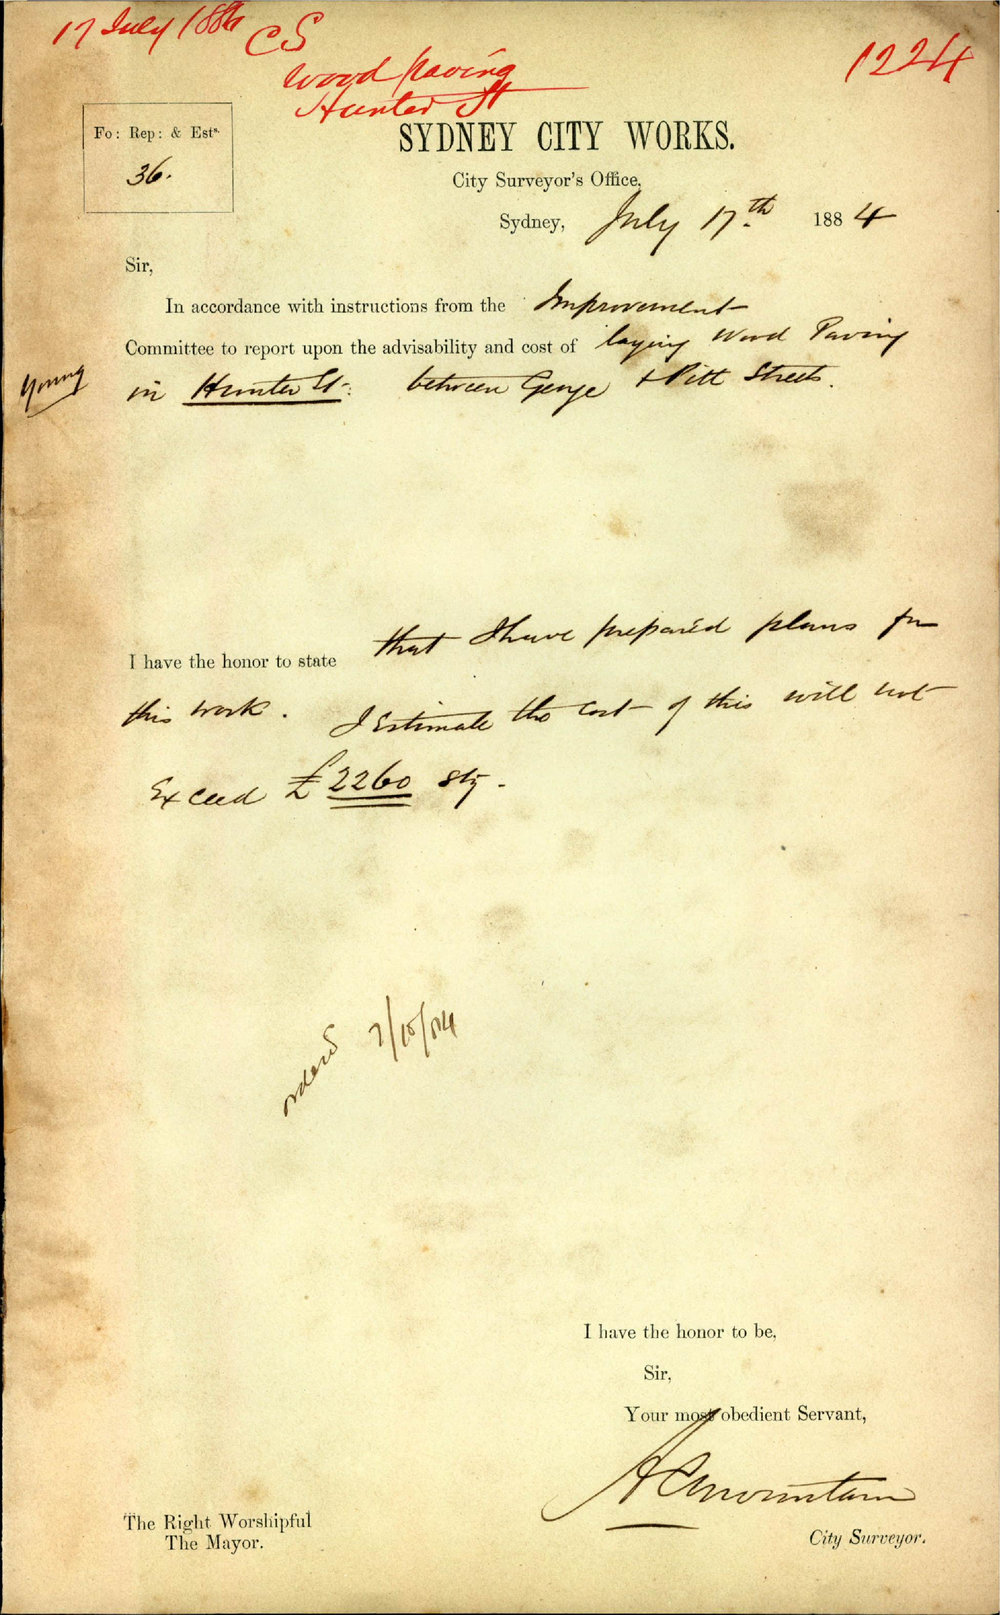 17 July 1884 CS
1224
Wood paving
Hunter St
Fo: Rep: & Ests.
36.
SYDNEY CITY WORKS.
City Surveyor's Office,
Sydney, July 17th. 1884
Sir,
In accordance with instructions from the Improvement
Committee to report upon the advisability and cost of laying Wood Paving
Young
in Hunter St: between George & Pitt Streets.
I have the honor to state that I have prepared plans for
this work. I Estimate the cost of this will not
Exceed £2260 stg.
ordered 7/10/84
I have the honor to be,
Sir,
Your most obedient Servant,
A C Mountain
The Right Worshipful
The Mayor.
City Surveyor.